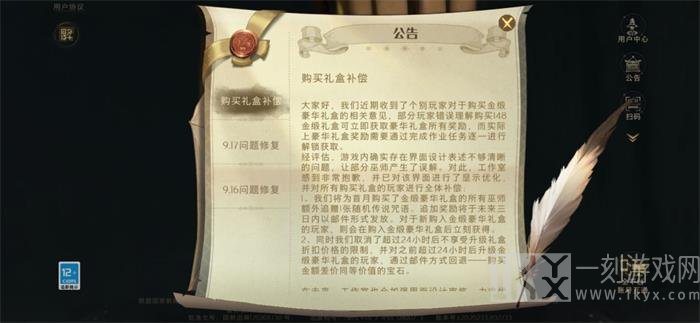 用户协议
公告
用户中心
公告
扫码
购买礼盒补偿
9.17问题修复
9.16问题修复
购买礼盒补偿
大家好，我们近期收到了个别玩家对于购买金缎
豪华礼盒的相关意见，部分玩家错误理解购买148
金缎礼盒可立即获取豪华礼盒所有奖励，而实际
上豪华礼盒奖励需要通过完成作业任务逐一进行
解锁获取。
经评估，游戏内确实存在界面设计表述不够清晰
的问题，让部分巫师产生了误解。对此，工作室
感到非常抱歉，并已对该界面进行了显示优化，
并对所有购买礼盒的玩家进行全体补偿：
1、我们将为首月购买了金缎豪华礼盒的所有巫师
额外追赠1张随机传说咒语。追加奖励将于未来三
日内以邮件形式发放。对于新购入金缎豪华礼盒
的玩家，则会在购入金缎豪华礼盒后立刻获得。
2、同时我们取消了超过24小时后不享受升级礼盒
折扣价格的限制，并对之前超过24小时后升级金
缎豪华礼盒的玩家，通过邮件方式回退——购买
金额差价同等价值的宝石。
12+
CADPA
适龄提示
一刻游戏网
www.1kyx.com